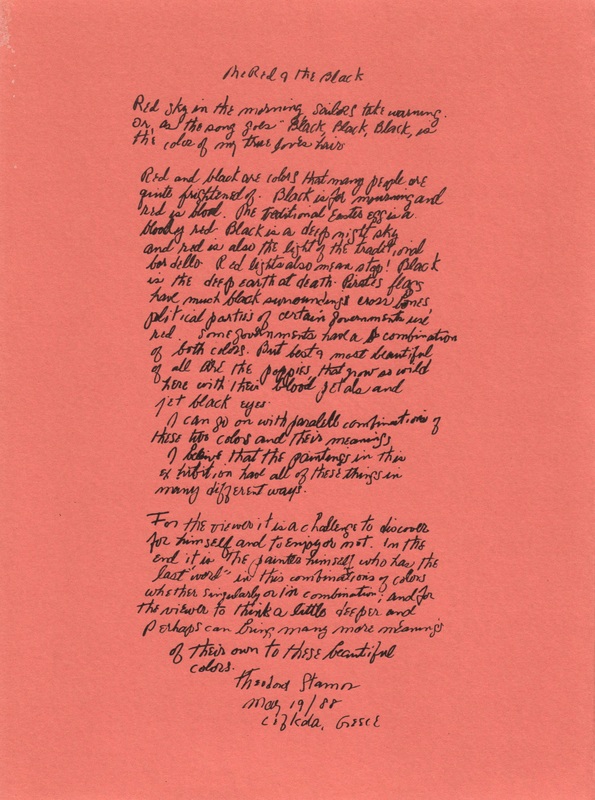 The Red & the Black
Red sky in the morning sailors take warning.
Or, as the song goes "Black, Black, Black, is
the color of my true loves hair
Red and black are colors that many people are
quite frightened of. Black is for mourning and
red is blood. The traditional Easter egg is a
bloody red. Black is a deep night sky
and red is also the light of the traditional
bordello. Red lights also mean stop! Black
is the deep earth at death. Pirates flags
have much black surroundings cross bones
political parties of certain governments use
red. Some governments have a combination
of both colors. But best & most beautiful
of all are the poppies that grow so wild
here with their blood petals and
jet black eyes.
I can go on with paralells combinations of
these two colors and their meanings
I believe that the paintings in this
exhibition have all of these things in
many different ways.
For the viewer it is a challenge to discover
for himself and to enjoy or not. In the
end it is "the painter himself who has the
last word" in this combinations of colors
whether singularly or in combination, and for
the viewer to think a little deeper and
Perhaps can bring many more meanings
of their own to these beautiful
colors.
Theodoros Stamos
May 19/88
Lefkada, Greece